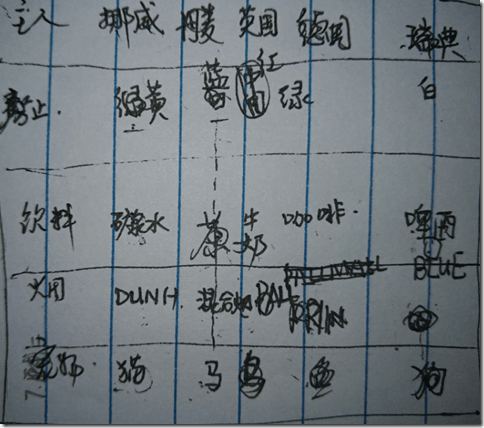 主人 挪威 丹麦 英国 德国 瑞典
黄 蓝 红 绿 白
饮料 水 茶 牛奶 咖啡 啤酒
DUNH. 混合烟 PALL PRIN BLUE
宠物 猫 马 鸟 鱼 狗